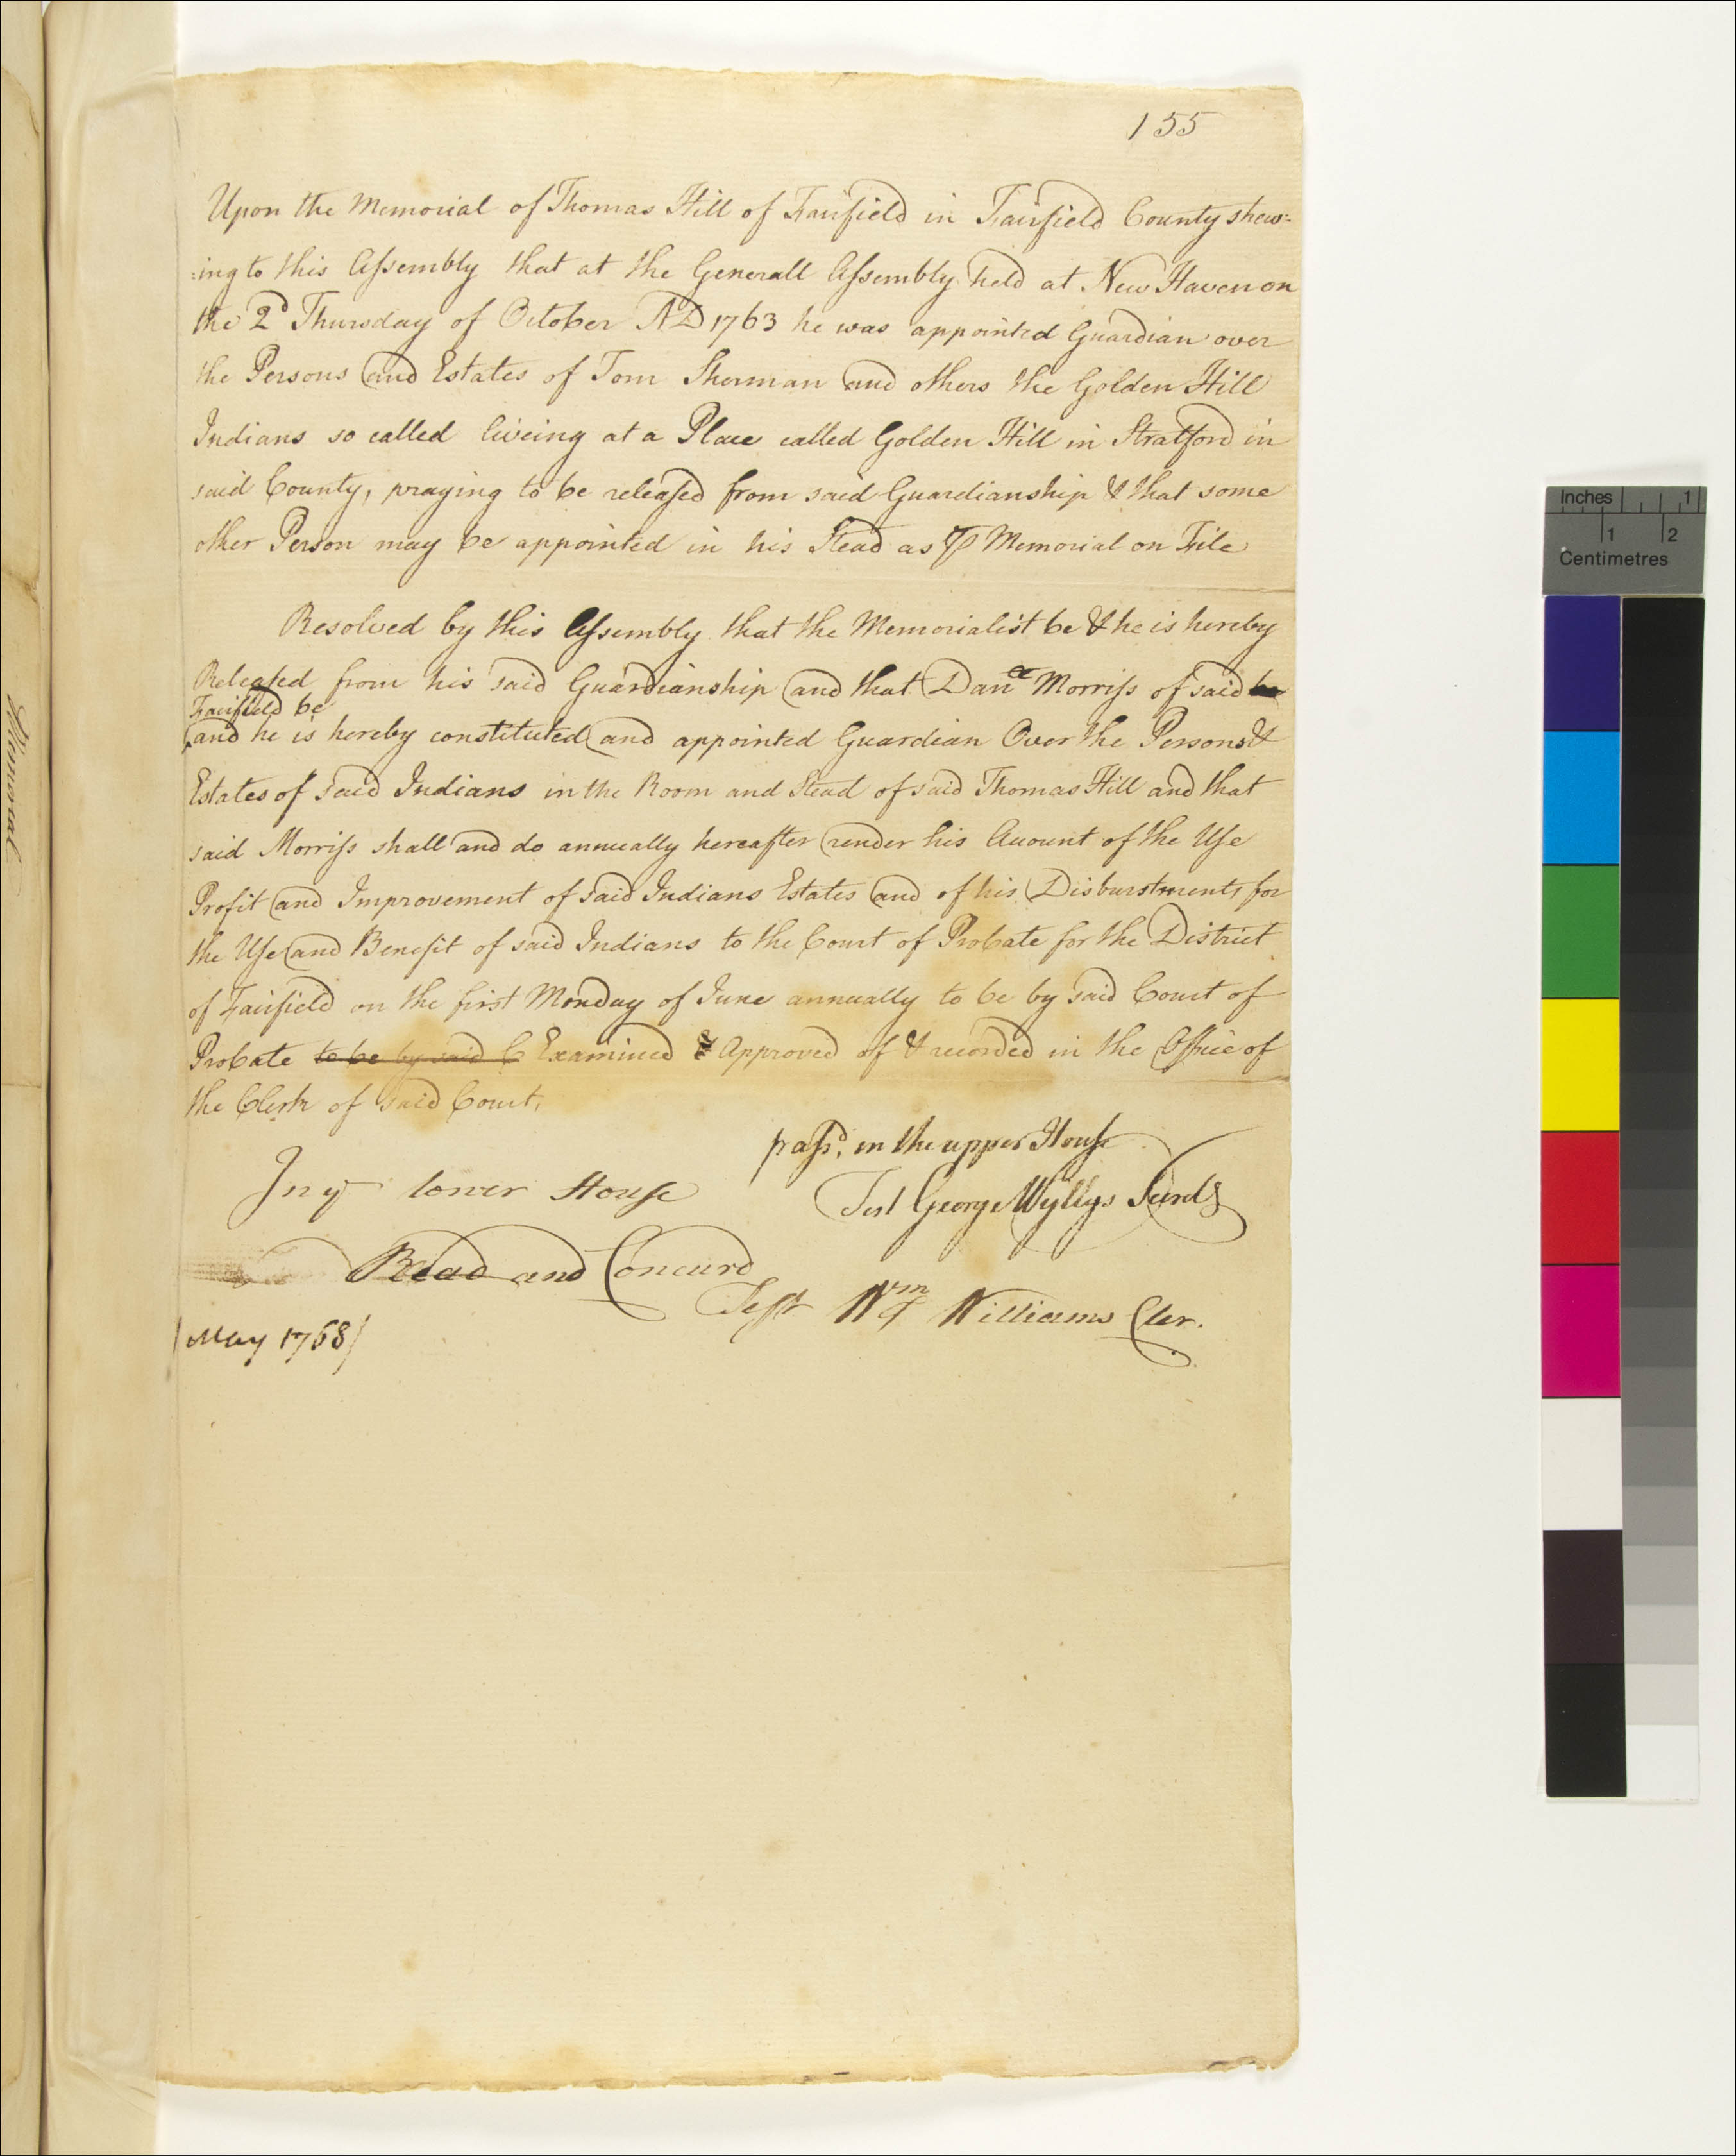 155
Upon the Memorial of Thomas Hill of Fairfield in Fairfield County shew=
=ing to this Assembly that at the Generall Assembly held at New Haven on
the 2d Thursday of October AD 1763 he was appointed Guardian over
the Persons and Estates of Tom Sherman and others the Golden Hill
Indians so called liveing at a Place called Golden Hill in Stratford in
said County, praying to be released from said Guardianship & that some
other Person may be appointed in his Stead as ⅌ Memorial on File
Resolved by this Assembly that the Memorialist be & he is hereby
Released from his said Guardianship and that Danll Morriss of said be
Fairfield be
and he is hereby constituted and appointed Guardian Over the Persons &
Estates of said Indians in the Room and Stead of said Thomas Hill and that
said Morriss shall and do annually hereafter render his Account of the Use
Profit and Improvement of said Indians Estates and of his Disburstments for
the Use and Benefit of said Indians to the Court of Probate for the District
of Fairfield on the first Monday of June annually to be by said Court of
Probate to be by said C Examined & Approved of & recorded in the Office of
the Clerk of said Court.
passd. in the upper House
Test George Wyllys Secrety
In ye lower House
Read and Concurd
Test Wm Williams Cler.
(May 1768)
Memorial
Inches 1
1 2
Centimetres